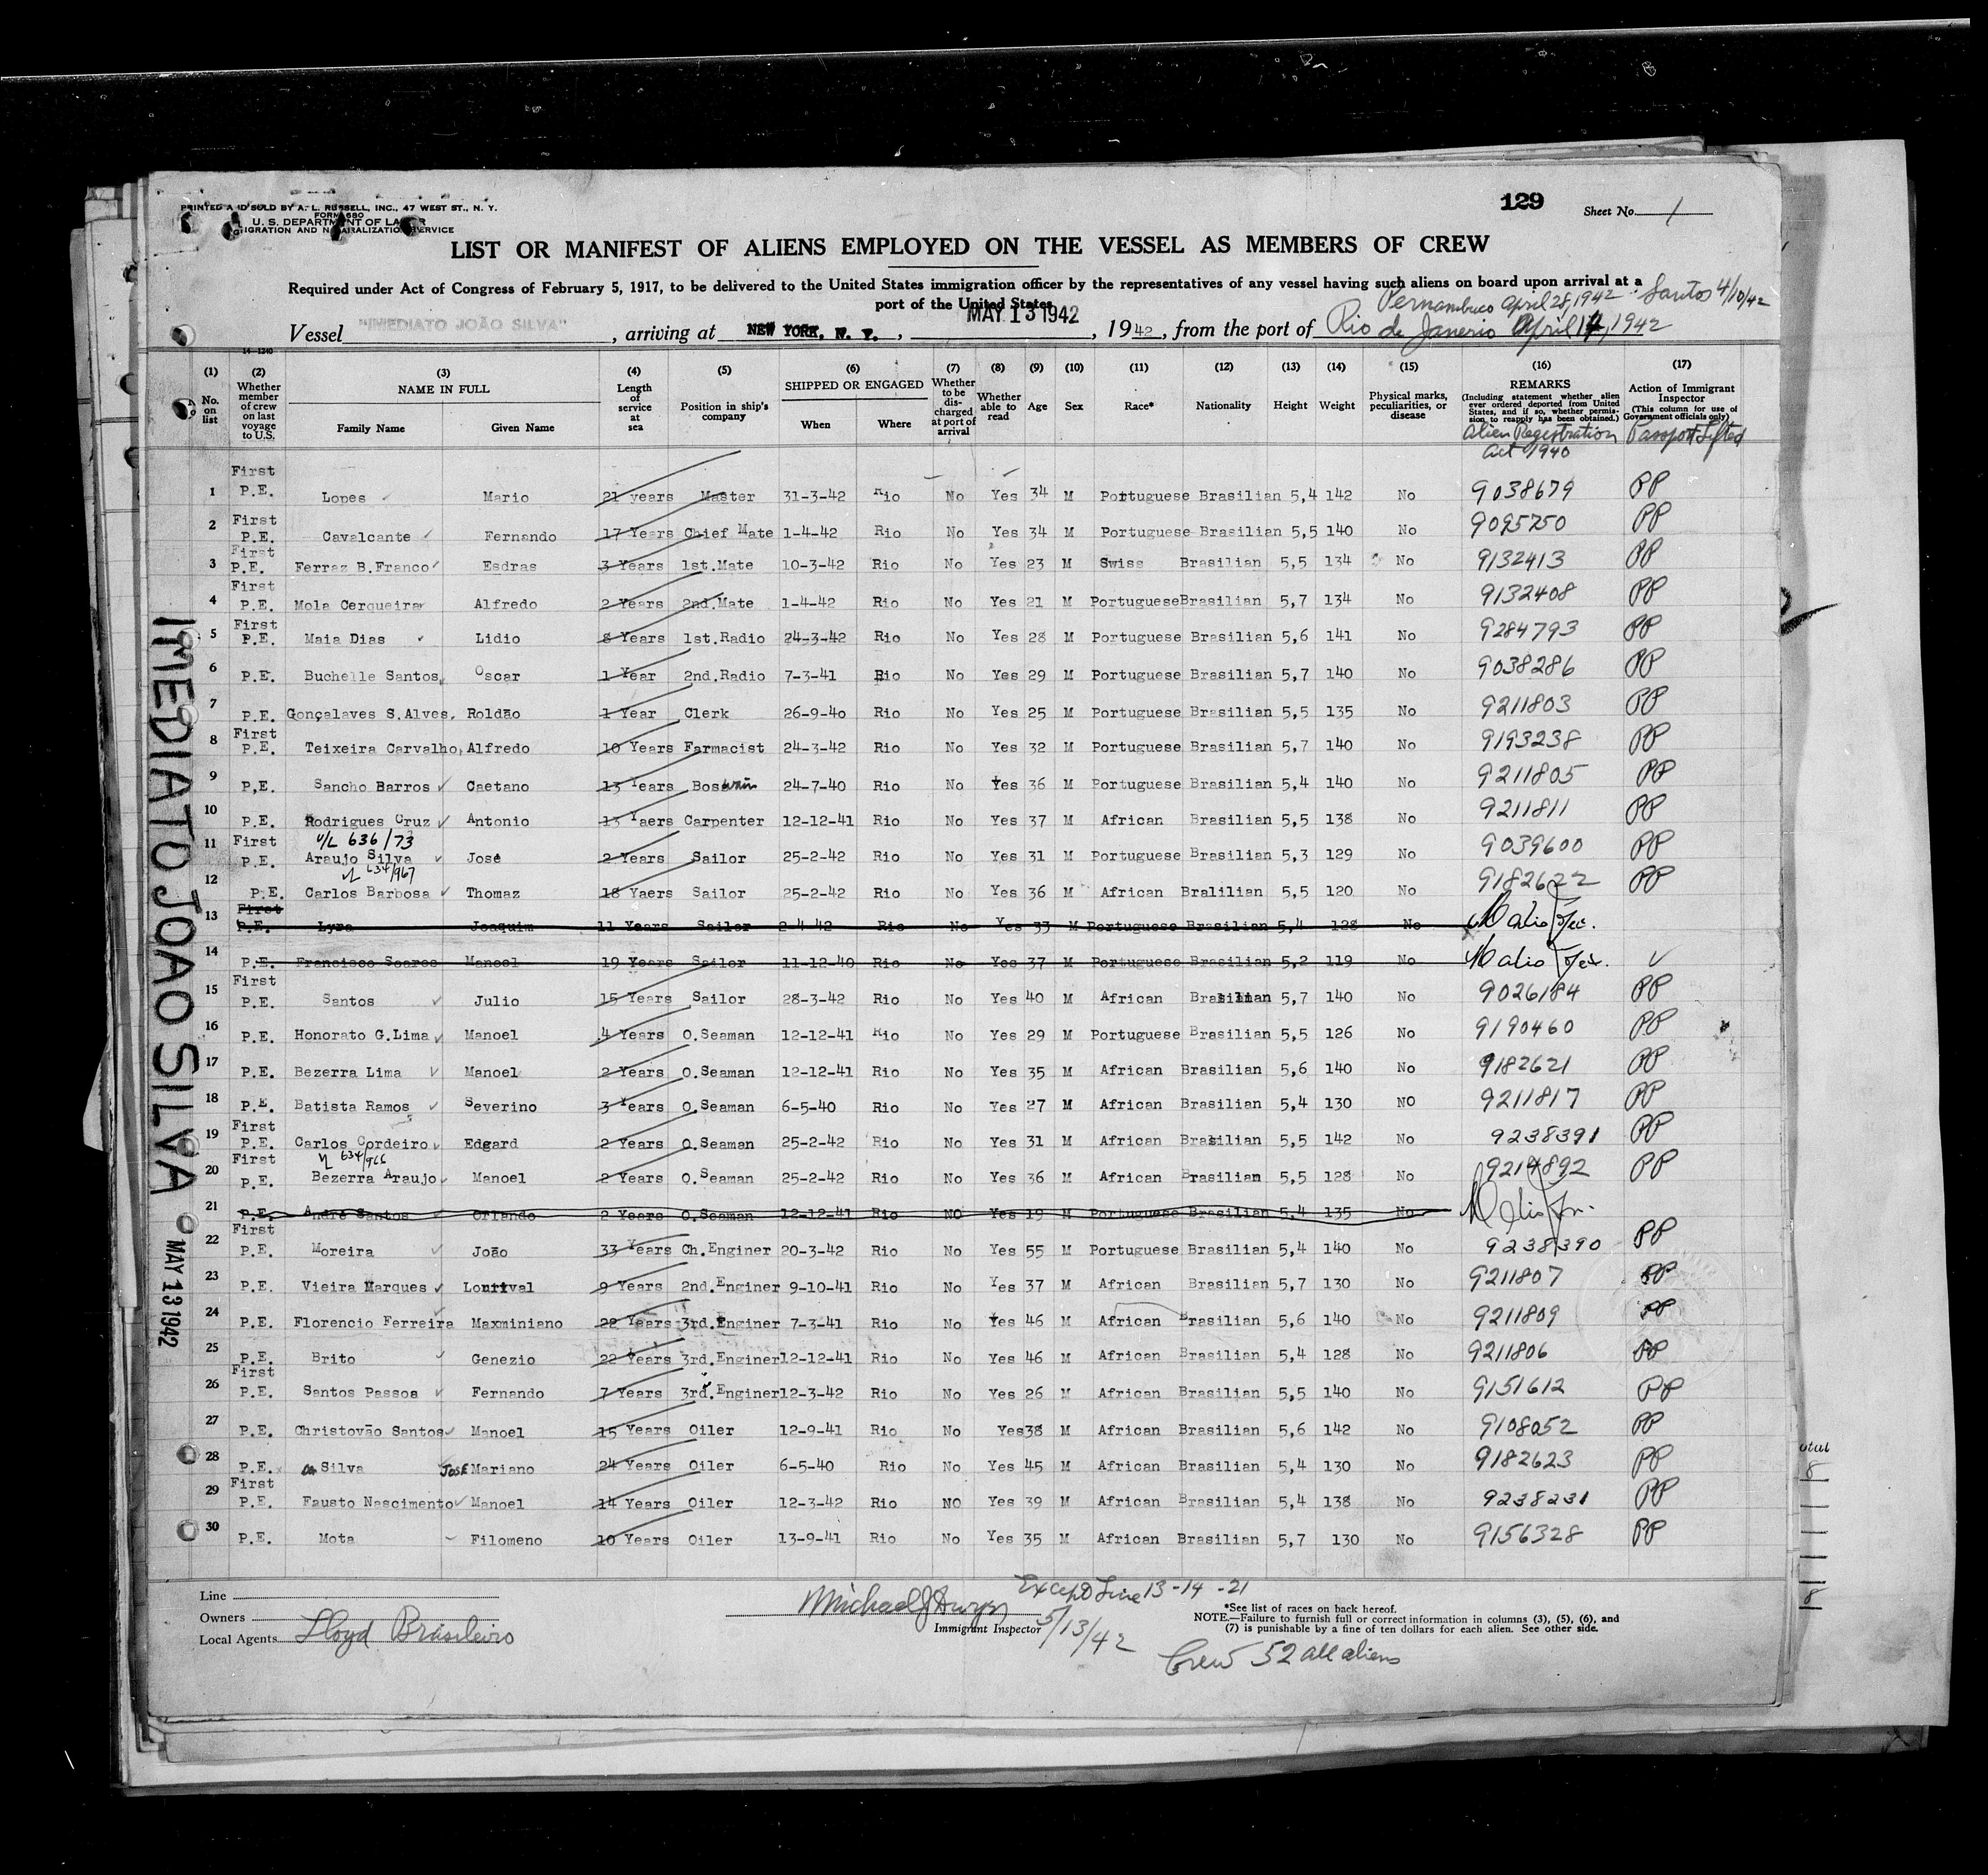 129
Sheet No. 1
PRINTED AND SOLD BY A. L. RUSSELL, INC., 47 WEST ST., N. Y.
FORM 680
U. S. DEPARTMENT OF LABOR
IMMIGRATION AND NATURALIZATION SERVICE
LIST OR MANIFEST OF ALIENS EMPLOYED ON THE VESSEL AS MEMBERS OF CREW
Required under Act of Congress of February 5, 1917, to be delivered to the United States immigration officer by the representatives of any vessel having such aliens on board upon arrival at a
port of the United States
Pernambuco April 28, 1942 - Santos 4/10/42
Vessel "IMEDIATO JOÃO SILVA", arriving at NEW YORK, N. Y., MAY 13 1942, 1942, from the port of Rio de Janerio April 14, 1942
14-1240
(1) No. on list (2) Whether member of crew on last voyage to U.S. (3) NAME IN FULL Family Name Given Name (4) Length of service at sea (5) Position in ship's company (6) SHIPPED OR ENGAGED When Where (7) Whether to be discharged at port of arrival (8) Whether able to read (9) Age (10) Sex (11) Race* (12) Nationality (13) Height (14) Weight (15) Physical marks, peculiarities, or disease (16) REMARKS (Including statement whether alien ever ordered deported from United States, and if so, whether permission to reapply has been obtained.) Alien Registration Act 1940 (17) Action of Immigrant Inspector (This column for use of Government officials only) Passport Lifted
1 First P.E. Lopes Mario 21 years Master 31-3-42 Rio No Yes 34 M Portuguese Brasilian 5,4 142 No 9038679 PP
2 First P.E. Cavalcante Fernando 17 Years Chief Mate 1-4-42 Rio No Yes 34 M Portuguese Brasilian 5,5 140 No 9095750 PP
3 First P.E. Ferraz B.Franco Esdras 3 Years 1st.Mate 10-3-42 Rio No Yes 23 M Swiss Brasilian 5,5 134 No 9132413 PP
4 First P.E. Mola Cerqueira Alfredo 2 Years 2nd.Mate 1-4-42 Rio No Yes 21 M Portuguese Brasilian 5,7 134 No 9132408 PP
5 First P.E. Maia Dias Lidio 8 Years 1st.Radio 24-3-42 Rio No Yes 28 M Portuguese Brasilian 5,6 141 No 9284793 PP
6 P.E. Buchelle Santos Oscar 1 Year 2nd.Radio 7-3-41 Rio No Yes 29 M Portuguese Brasilian 5,7 140 No 9038286 PP
7 P.E. Gonçalaves S.Alves, Roldão 1 Year Clerk 26-9-40 Rio No Yes 25 M Portuguese Brasilian 5,5 135 No 9211803 PP
8 First P.E. Teixeira Carvalho, Alfredo 10 Years Farmacist 24-3-42 Rio No Yes 32 M Portuguese Brasilian 5,7 140 No 9193238 PP
9 P,E. Sancho Barros Caetano 13 Years Boswain 24-7-40 Rio No Yes 36 M Portuguese Brasilian 5,4 140 No 9211805 PP
10 P.E. Rodrigues Cruz Antonio 13 Yaers Carpenter 12-12-41 Rio No Yes 37 M African Brasilian 5,5 138 No 9211811 PP
V/L 636/73
11 First P.E. Araujo Silva José 2 Years Sailor 25-2-42 Rio No Yes 31 M Portuguese Brasilian 5,3 129 No 9039600 PP
634/967
12 P.E. Carlos Barbosa Thomaz 18 Yaers Sailor 25-2-42 Rio No Yes 36 M African Bralilian 5,5 120 No 9182622 PP
13 First P.E. Lyra Joaquim 11 Years Sailor 2-4-42 Rio No Yes 33 M Portuguese Brasilian 5,4 128 No
14 P.E. Francisco Soares Manoel 19 Years Sailor 11-12-40 Rio No Yes 37 M Portuguese Brasilian 5,2 119 No
15 First P.E. Santos Julio 15 Years Sailor 28-3-42 Rio No Yes 40 M African Brasilian 5,7 140 No 9026184 PP
16 P.E. Honorato G.Lima Manoel 4 Years O.Seaman 12-12-41 Rio No Yes 29 M Portuguese Brasilian 5,5 126 No 9190460 PP
17 P.E. Bezerra Lima Manoel 2 Years O.Seaman 12-12-41 Rio No Yes 35 M African Brasilian 5,6 140 No 9182621 PP
18 P.E. Batista Ramos Severino 3 Years O.Seaman 6-5-40 Rio No Yes 27 M African Brasilian 5,4 130 NO 9211817 PP
19 First P.E. Carlos Cordeiro Edgard 2 Years O.Seaman 25-2-42 Rio No Yes 31 M African Brasilian 5,5 142 No 9238391 PP
634/966
20 First P.E. Bezerra Araujo Manoel 2 Years O.Seaman 25-2-42 Rio No Yes 36 M African Brasilian 5,5 128 No 9214892 PP
21 P.E. André Santos Orlando 2 Years O.Seaman 12-12-41 Rio NO Yes 19 M Portuguese Brasilian 5,4 135 No
22 First P.E. Moreira João 33 Years Ch.Enginer 20-3-42 Rio No Yes 55 M Portuguese Brasilian 5,4 140 No 9238390 PP
23 P.E. Vieira Marques Lourival 9 Years 2nd.Enginer 9-10-41 Rio No Yes 37 M African Brasilian 5,7 130 No 9211807 PP
24 P.E. Florencio Ferreira Maxminiano 22 Years 3rd.Enginer 7-3-41 Rio No Yes 46 M African Brasilian 5,6 140 No 9211809 PP
25 P.E. Brito Genezio 22 Years 3rd.Enginer 12-12-41 Rio No Yes 46 M African Brasilian 5,4 128 No 9211806 PP
26 First P.E. Santos Passos Fernando 7 Years 3rd.Enginer 12-3-42 Rio No Yes 26 M African Brasilian 5,5 140 No 9151612 PP
27 P.E. Christovão Santos Manoel 15 Years Oiler 12-9-41 Rio No Yes 38 M African Brasilian 5,6 142 No 9108052 PP
28 P.E. da Silva José Mariano 24 Years Oiler 6-5-40 Rio No Yes 45 M African Brasilian 5,4 130 No 9182623 PP
29 First P.E. Fausto Nascimento Manoel 14 Years Oiler 12-3-42 Rio NO Yes 39 M African Brasilian 5,4 138 No 9238231 PP
30 P.E. Mota Filomeno 10 Years Oiler 13-9-41 Rio No Yes 35 M African Brasilian 5,7 130 No 9156328 PP
IMEDIATO JOAO SILVA MAY 13 1942
Line
Owners
Local Agents Lloyd Brasileiro
Except Line 13-14-21
Michael J Dwyer
Immigrant Inspector
5/13/42
*See list of races on back hereof.
NOTE.—Failure to furnish full or correct information in columns (3), (5), (6), and
(7) is punishable by a fine of ten dollars for each alien. See other side.
Crew 52 all aliens
otal
8
8